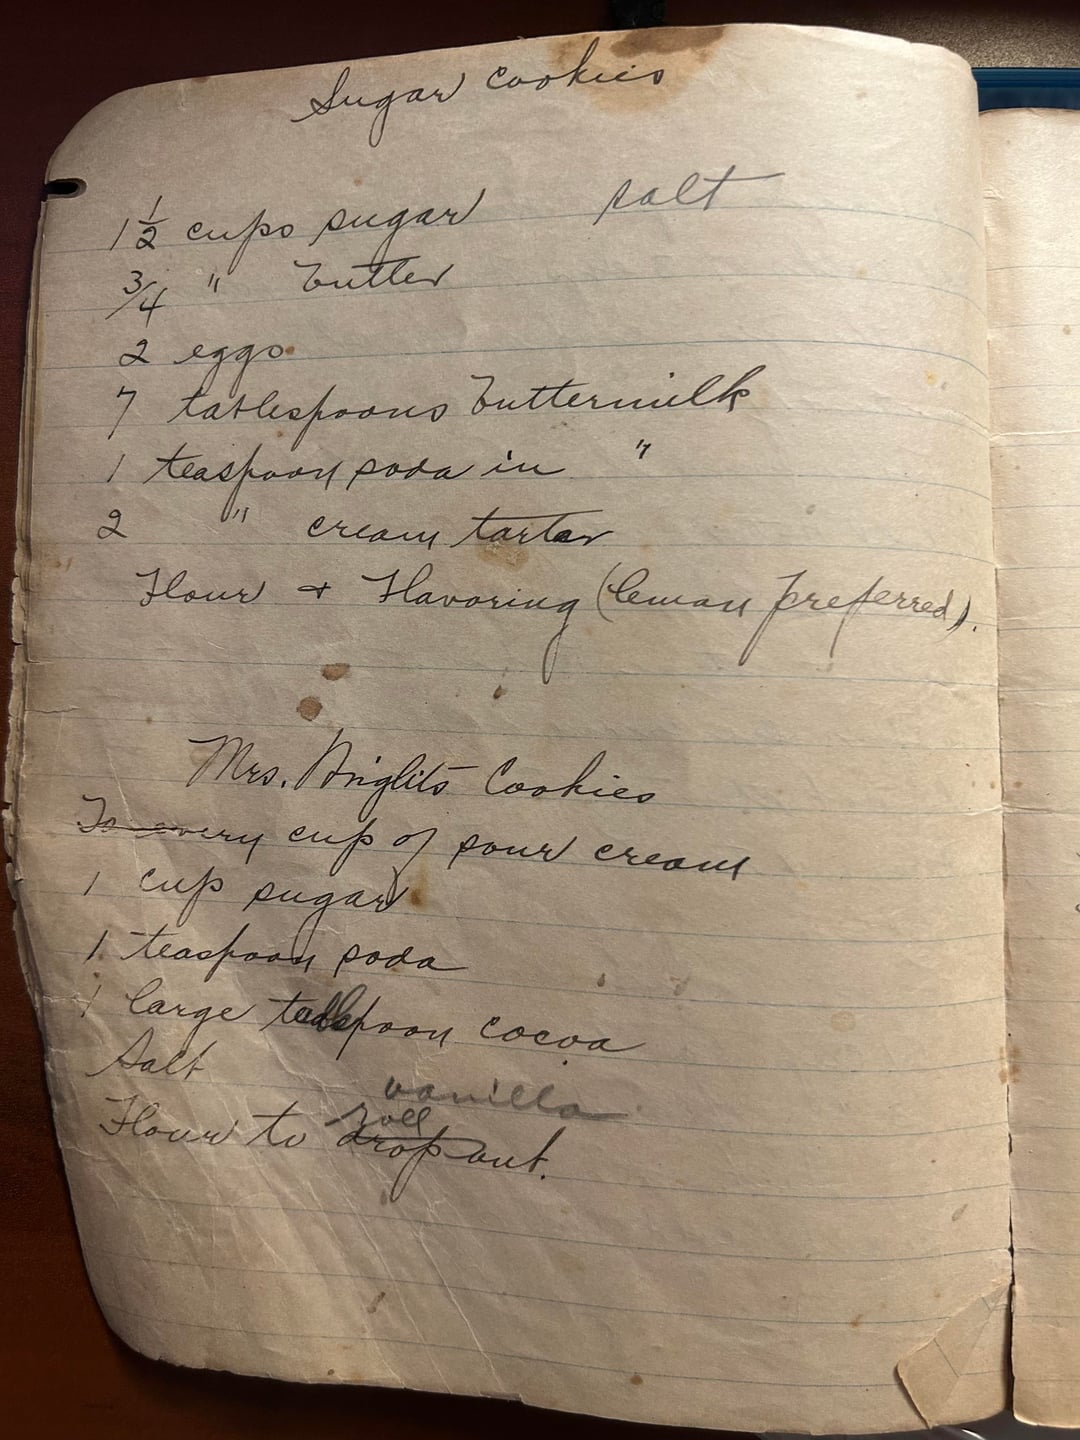 Sugar Cookies
1 1/2 cups sugar salt
3/4 " butter
2 eggs
7 tablespoons buttermilk
1 teaspoon soda in "
2 " cream tartar
Flour + Flavoring (lemon preferred).
Mrs. Cookies
To every cup of sour cream
1 cup sugar
1 teaspoon soda
1 large tablespoon cocoa
Salt
vanilla
roll
Flour to drop out.